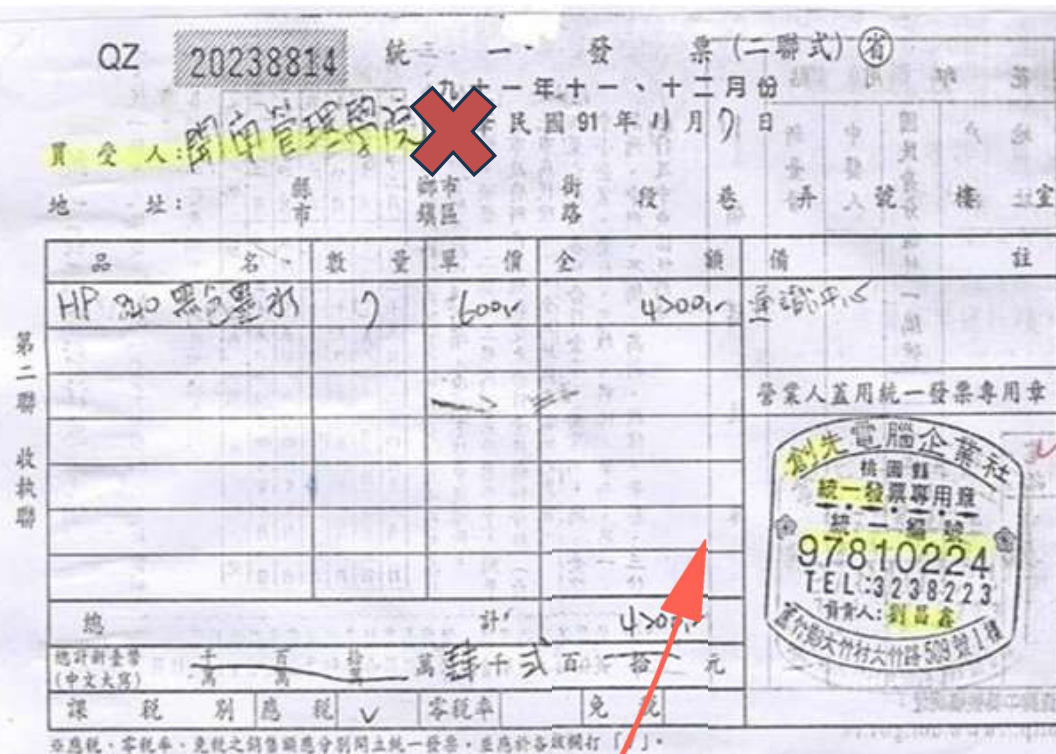 QZ 20238814 統一發票(二聯式) 省
九十一年十一、十二月份
中民國 91 年 11 月 7 日
買受人：開南管理學院
地址： 縣市 鄉鎮市區 街路 段 巷 弄 號 樓 室
品名 數量 單價 金額 備註
HP 黑色墨水 7 600 4200 通識中心
營業人蓋用統一發票專用章
第二聯 收執聯
創先電腦企業社
桃園縣
統一發票專用章
統一編號
97810224
TEL:3238223
負責人:劉昌鑫
蘆竹鄉大竹村大竹路509號1樓
總計 4200
總計新臺幣(中文大寫) 千萬 百萬 拾萬 萬 肆千 弍百 拾 元
課稅別 應稅 V 零稅率 免稅
※應稅、零稅率、免稅之銷售額應分別開立統一發票，並應於各該欄打「✓」。